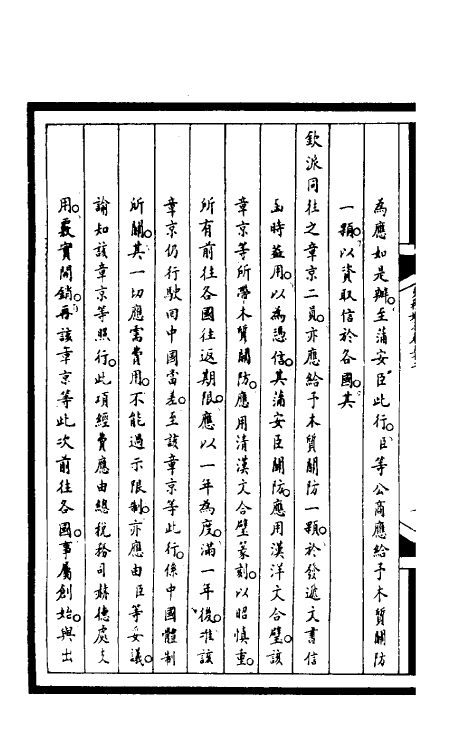 為應如是辦。至蒲安臣此行。臣等公商應給予木質關防
一顆。以資取信於各國。其
欽派同往之章京二員。亦應給予木質關防一顆。於發遞文書信
函時蓋用。以為憑信。其蒲安臣關防。應用漢洋文合璧。該
章京等所帶木質關防。應用清漢文合璧篆刻。以昭慎重。
所有前往各國往返期限。應以一年為度。滿一年後。准該
章京仍行駛回中國當差。至該章京等此行。係中國體制
所關。其一切應需費用。不能過示限制。亦應由臣等妥議。
諭知該章京等照行。此項經費應由總稅務司赫德處支
用。覈實開銷。再該章京等此次前往各國。事屬創始。與出